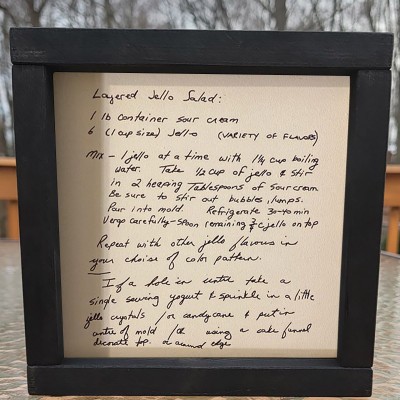 Layered Jello Salad:
1 lb container sour cream
6 (1 cup size) Jell-o (VARIETY OF FLAVORS)
Mix - 1 jello at a time with 1¼ cup boiling
water. Take ½ cup of jello & stir
in 2 heaping Tablespoons of sour cream
Be sure to stir out bubbles, lumps.
Pour into mold. Refrigerate 30-40 min
Very carefully - spoon remaining ¾ c jello on top
Repeat with other jello flavors in
your choice of color pattern.
If a hole in take a
single serving yogurt & sprinkle in a little
jello crystals / or candy cane & put in
centre of mold / or using a cake funnel
decorate top. or around edge